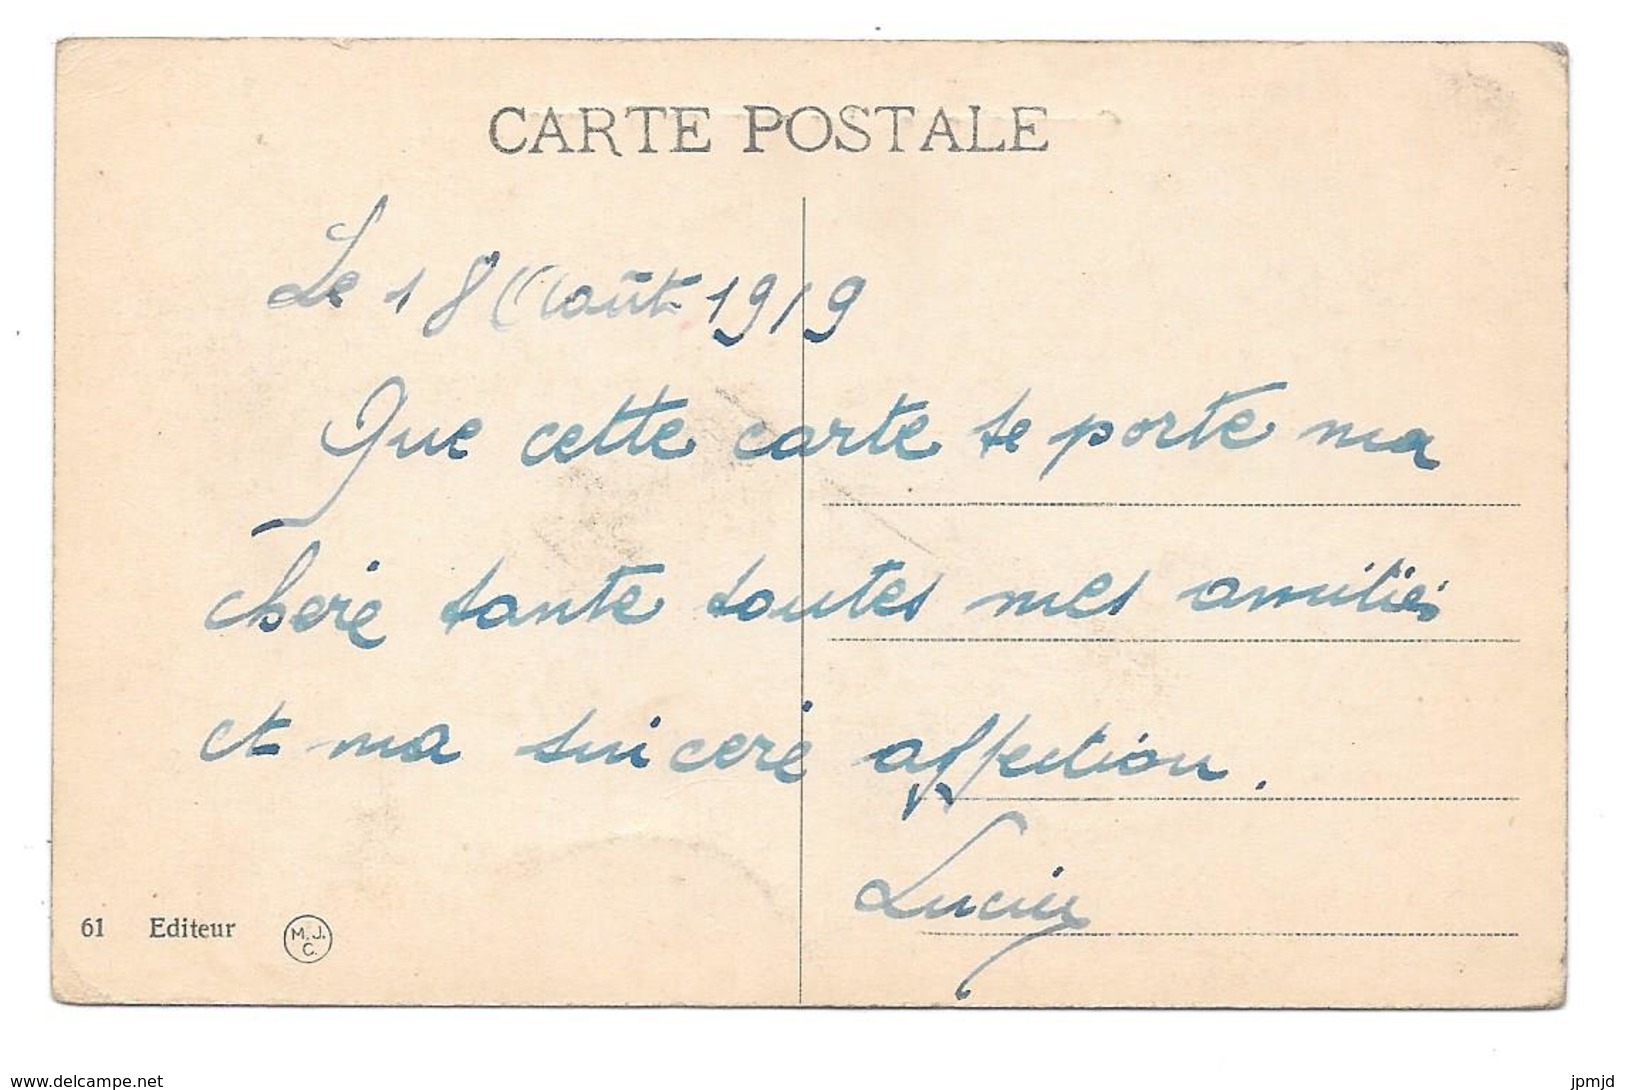 CARTE POSTALE
Le 18 Août 1919
Que cette carte te porte ma
chère tante toutes mes amitiés
et ma sincère affection.
Lucien
61 Editeur M.J.C.
www.delcampe.net
jpmjd